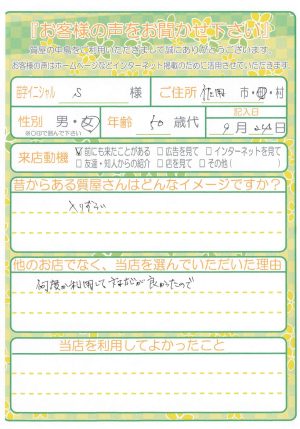 『お客様の声をお聞かせ下さい』
質屋の中島をご利用いただきまして誠にありがとうございます。
お客様の声はホームページなどインターネット掲載のために活用させていただきます。
苗字イニシャル S 様 ご住所 市・町・村
性別 男・女 年齢 50 歳代 記入日
※○印で囲んで下さい 9月24日
来店動機 ☑前にも来たことがある □広告を見て □インターネットを見て
□友達・知人からの紹介 □店を見て □その他(
昔からある質屋さんはどんなイメージですか?
入りずらい
他のお店でなく、当店を選んでいただいた理由
何度か利用して が良かったので
当店を利用してよかったこと